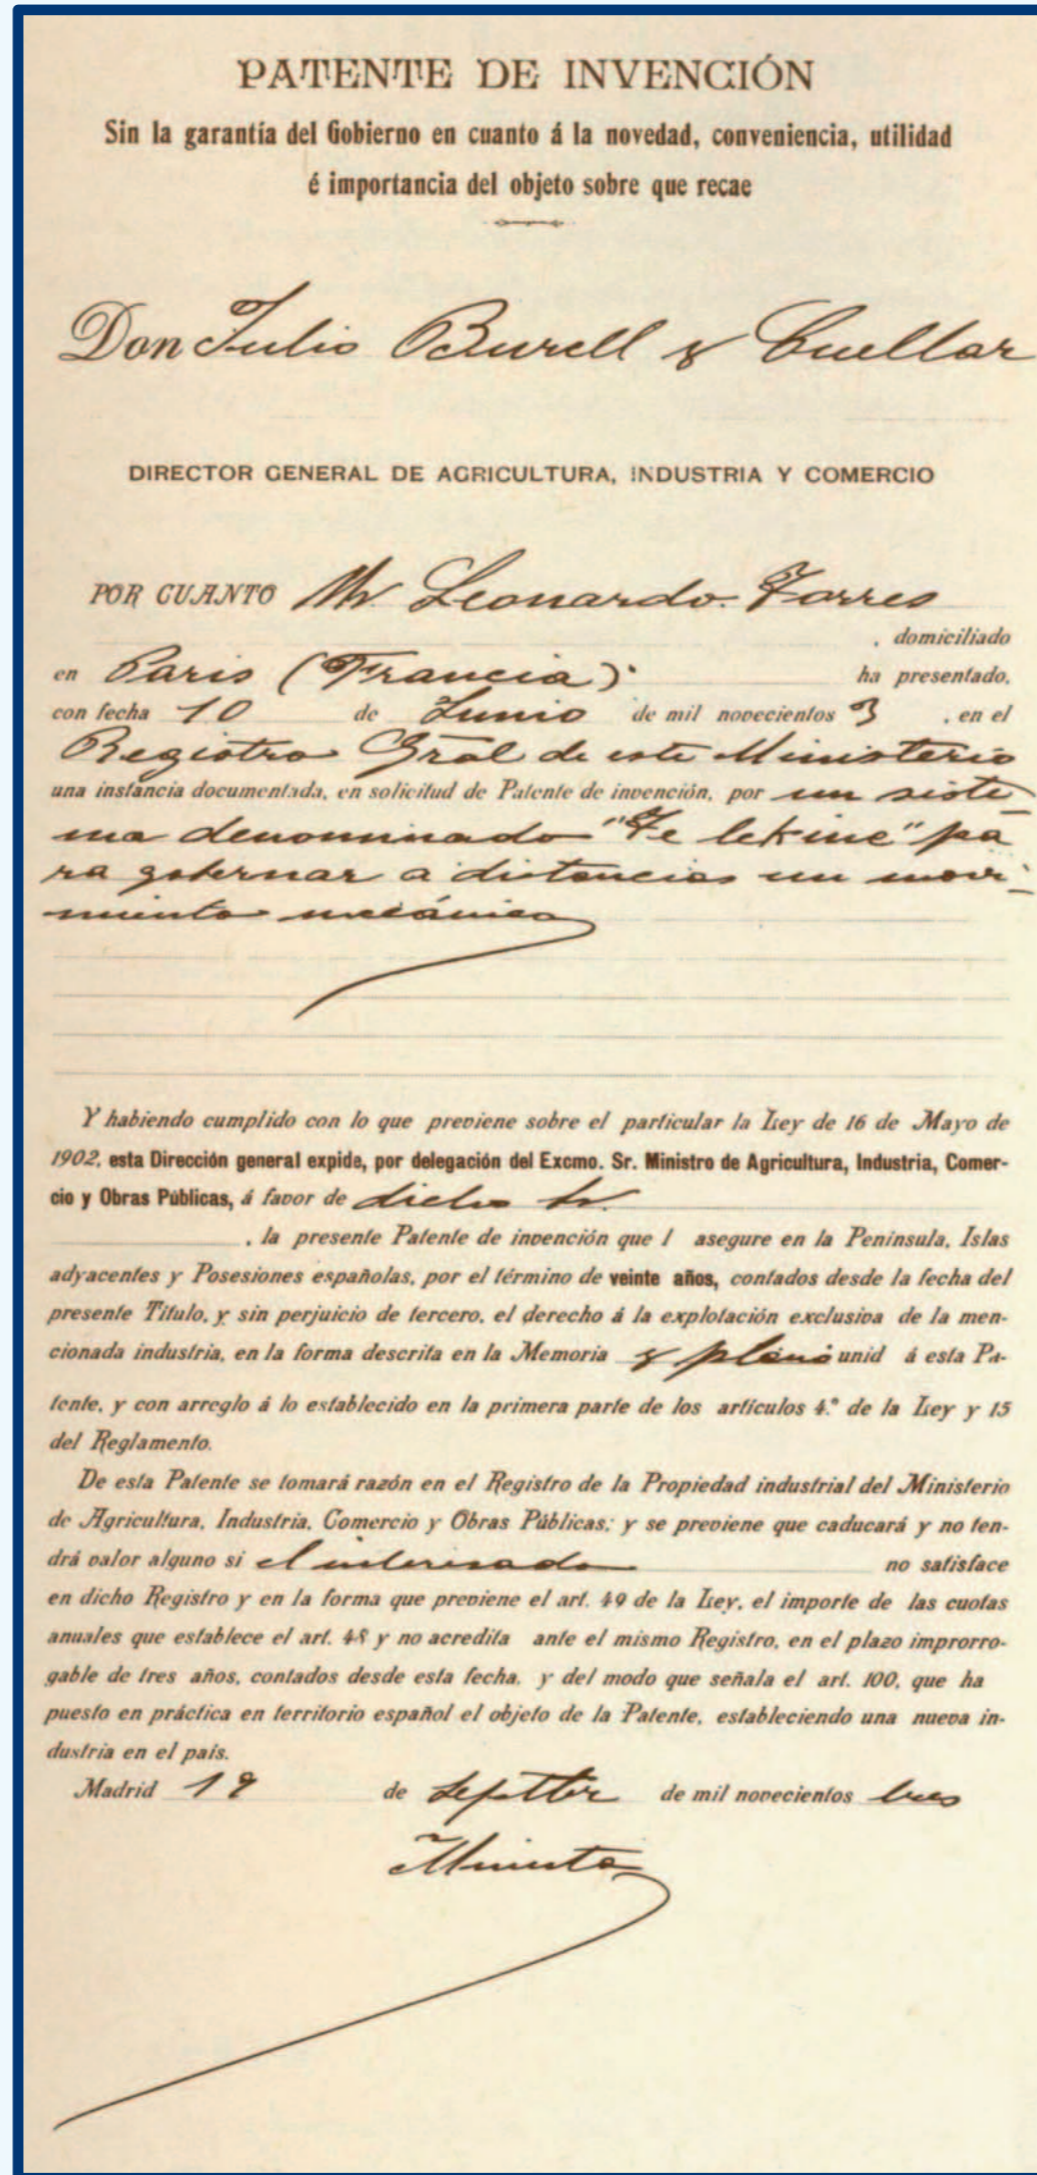 PATENTE DE INVENCIÓN
Sin la garantía del Gobierno en cuanto á la novedad, conveniencia, utilidad
é importancia del objeto sobre que recae
Don Julio Burell y Cuellar
DIRECTOR GENERAL DE AGRICULTURA, INDUSTRIA Y COMERCIO
POR CUANTO Mr. Leonardo Torres
, domiciliado
en Paris (Francia) ha presentado,
con fecha 10 de Junio de mil novecientos 3 , en el
Registro Gral de este Ministerio
una instancia documentada, en solicitud de Patente de invención, por un siste
ma denominado "Te lekine" pa
ra gobernar a distancias un movi-
miento mecánico
Y habiendo cumplido con lo que previene sobre el particular la Ley de 16 de Mayo de
1902, esta Dirección general expide, por delegación del Excmo. Sr. Ministro de Agricultura, Industria, Comer-
cio y Obras Públicas, á favor de dicho Sr.
, la presente Patente de invención que l asegure en la Península, Islas
adyacentes y Posesiones españolas, por el término de veinte años, contados desde la fecha del
presente Título, y sin perjuicio de tercero, el derecho á la explotación exclusiva de la men-
cionada industria, en la forma descrita en la Memoria y plano unid á esta Pa-
tente, y con arreglo á lo establecido en la primera parte de los artículos 4.º de la Ley y 15
del Reglamento.
De esta Patente se tomará razón en el Registro de la Propiedad industrial del Ministerio
de Agricultura, Industria, Comercio y Obras Públicas; y se previene que caducará y no ten-
drá valor alguno si el interesado no satisface
en dicho Registro y en la forma que previene el art. 49 de la Ley, el importe de las cuotas
anuales que establece el art. 48 y no acredita ante el mismo Registro, en el plazo improrro-
gable de tres años, contados desde esta fecha, y del modo que señala el art. 100, que ha
puesto en práctica en territorio español el objeto de la Patente, estableciendo una nueva in-
dustria en el país.
Madrid de Septbre de mil novecientos tres
Minuta